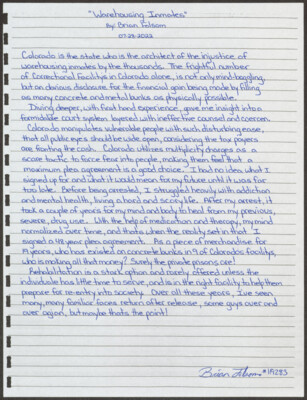 "Warehousing Inmates"
By: Brian Folsom
07-28-2022
Colorado is the state who is the architect of the injustice of
warehousing inmates by the thousands. The frightful number
of Correctional Facilitys in Colorado alone, is not only mind-boggling,
but an obvious disclosure for the financial gain being made by filling
as many concrete and metal bunks as physically possible.
Diving deeper, with first hand experience, gave me insight into a
formidable court system layered with ineffective counsel and coercion.
Colorado manipulates vulnerable people with such disturbing ease,
that all public eyes should be wide open, considering the tax payers
are footing the cash. Colorado utilizes multiplicity charges as a
scare tactic to force fear into people, making them feel that a
maximum plea agreement is a good choice. I had no idea what I
signed up for and what it would mean for my future until it was far
too late. Before being arrested, I struggled heavily with addiction
and mental health, living a hard and scary life. After my arrest, it
took a couple of years for my mind and body to heal from my previous,
severe, drug use. With the help of medication and therapy, my mind
normalized over time, and thats when the reality set in that I
signed a 48 year plea agreement. As a piece of merchandise for
19 years, who has existed on concrete bunks in 9 of Colorados facilitys,
who is making all that money? Surely the private prisons are!
Rehabilitation is a stark option and rarely offered unless the
individual has little time to serve, and is in the right facility to help them
prepare for re-entry into society. Over all these years, I've seen
many, many familiar faces return after release, some guys over and
over again, but maybe thats the point!
Brian Folsom #119283